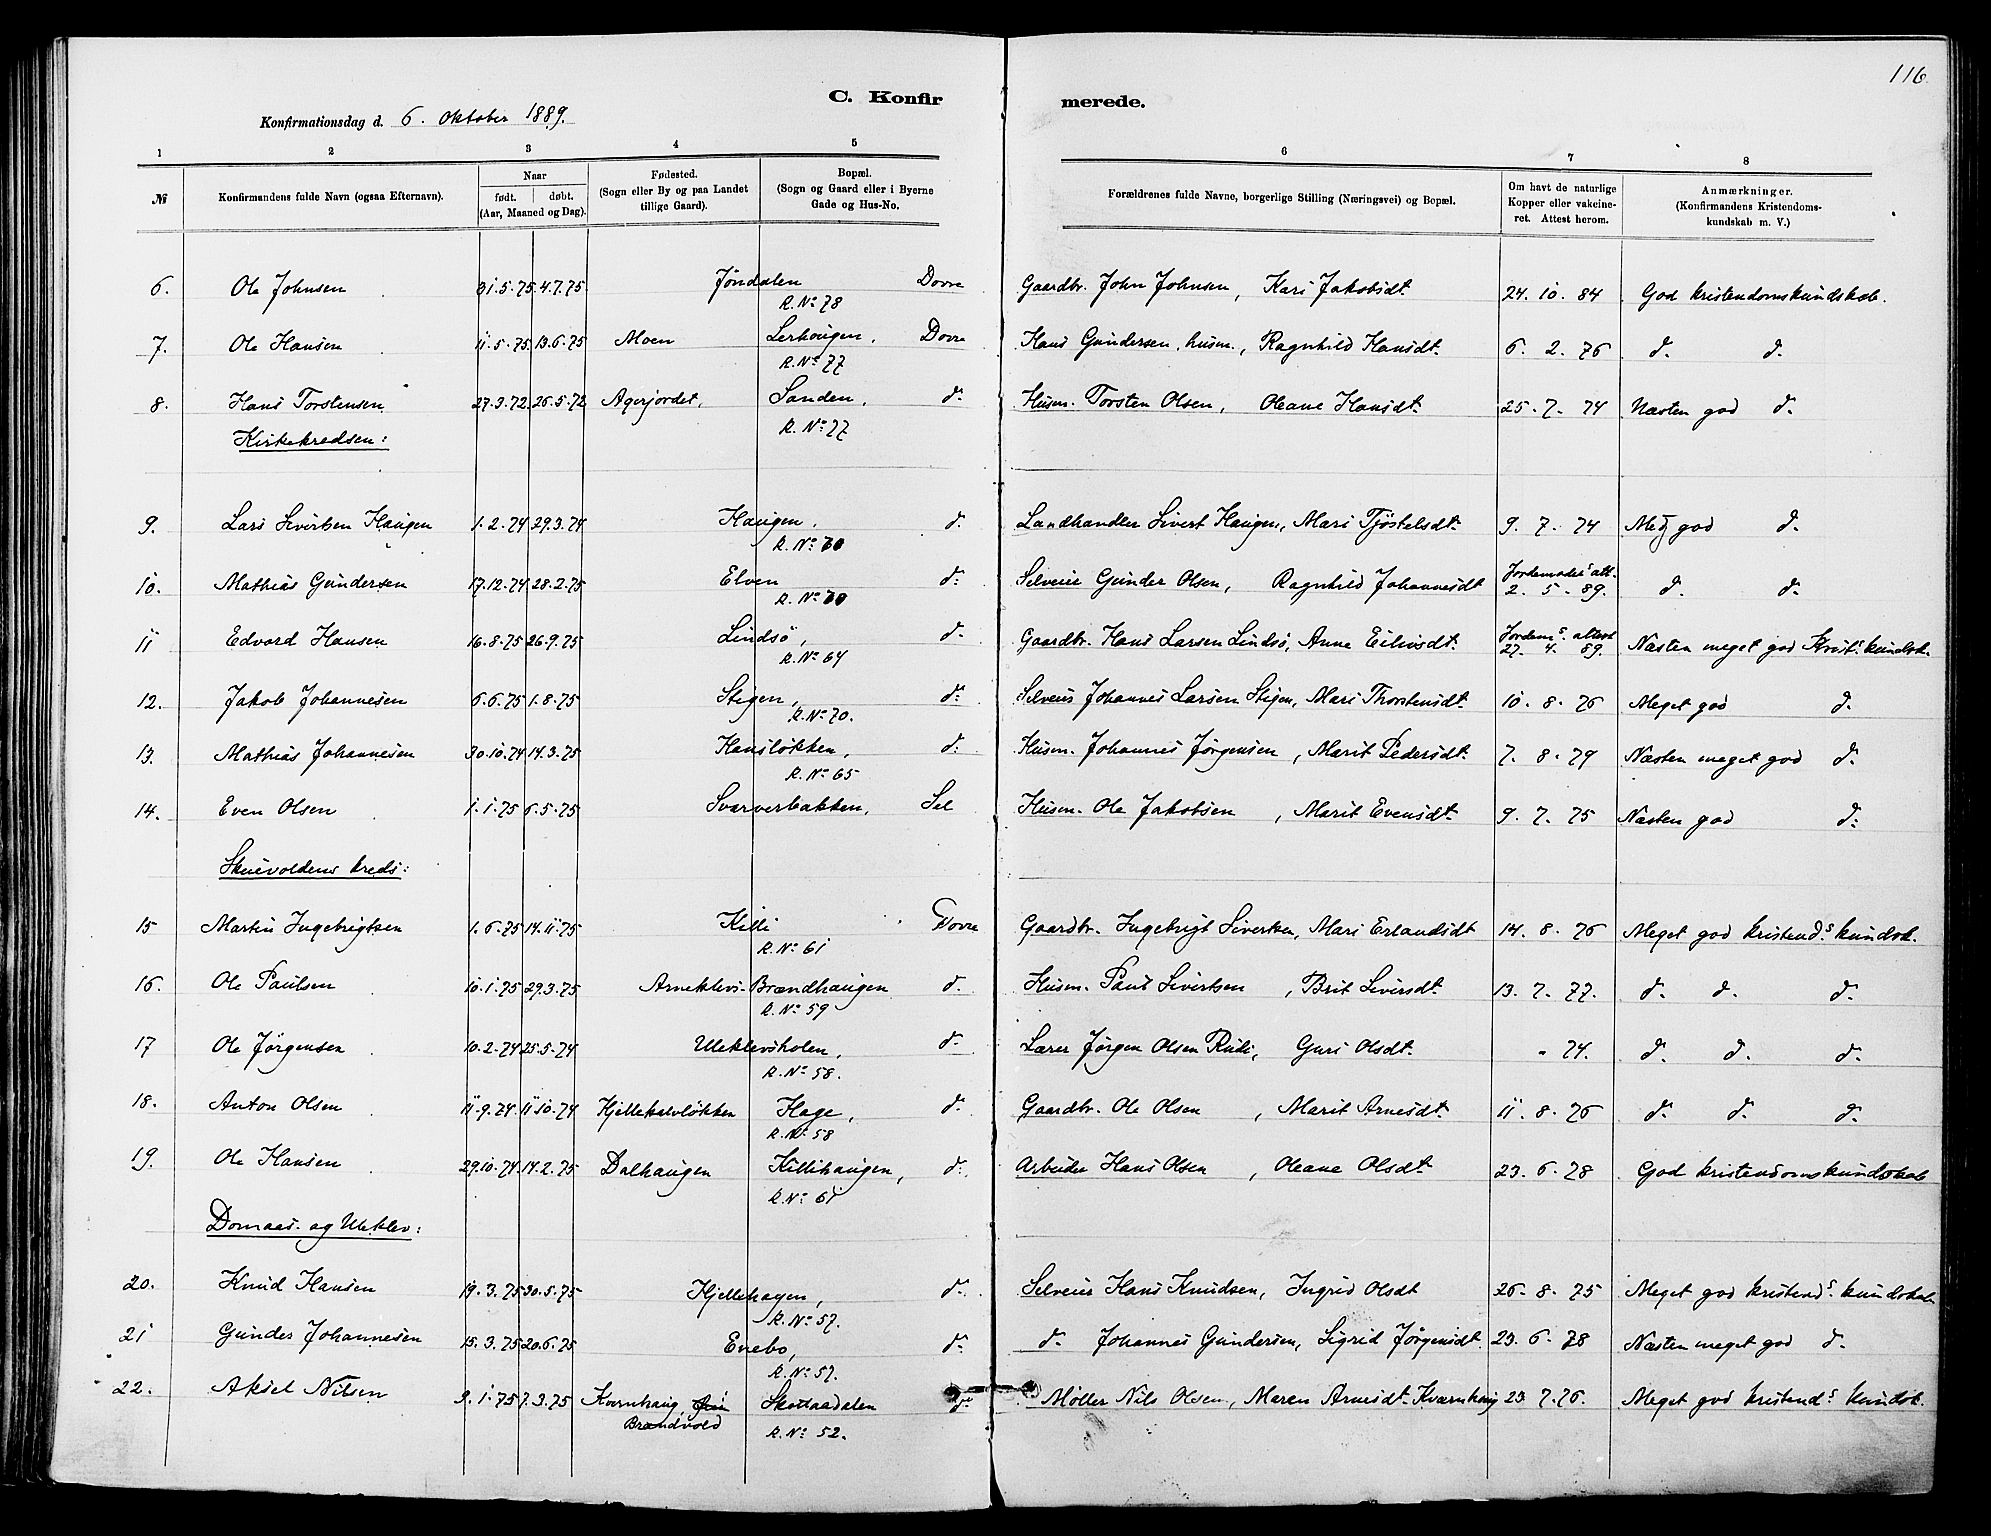 116
C. Konfir merede.
Konfirmationsdag d. 6. Oktober 1889.
1 2 3 4 5 6 7 8
№ Konfirmandens fulde Navn (ogsaa Efternavn).
Naar
født. døbt.
(Aar, Maaned og Dag).
Fødested.
(Sogn eller By og paa Landet
tillige Gaard).
Bopæl.
(Sogn og Gaard eller i Byerne
Gade og Hus-No.
Forældrenes fulde Navne, borgerlige Stilling (Næringsvei) og Bopæl.
Om havt de naturlige
Kopper eller vakcine-
ret. Attest herom.
Anmærkninger.
(Konfirmandens Kristendoms-
kundskab m. V.)
6. Ole Johnsen 31.5.75 4.7.75 Jøndalen Dovre Gaardbr. John Johnsen, Kari Jakobsdt. 24.10.84 God kristendomskundskab.
R. No 78
7. Ole Hansen 11.5.75 13.6.75 Moen Lerhougen, Dovre Hans Gundersen, husm., Ragnhild Hansdt. 6.2.76 d. d.
R. No 77
8. Hans Torstensen 27.3.72 26.5.72 Agerjordet, Sanden, d. Husm. Torsten Olsen, Oleane Hansdt. 25.7.74 Næsten god d.
R. No 77
Kirkekredsen:
9. Lars Sivertsen Haugen 1.2.74 29.3.74 Haugen, d. Landhandler Sivert Haugen, Mari Tjøstelsdt. 9.7.74 Meg god d.
R. No 70
10. Mathias Gundersen 17.12.74 28.2.75 Elven d. Selveier Gunder Olsen, Ragnhild Johannesdt Jordemoders att. 2.5.89. d. d.
R. No 70
11 Edvard Hansen 16.8.75 26.9.75 Lindsø, d. Gaardbr. Hans Larsen Lindsø, Anne Eilivsdt. Jordems attest 27.4.89. Næsten meget god Krist.s kundsk.
R. No 64
12. Jakob Johannesen 6.6.75 1.8.75 Stigen, d. Selveier Johannes Larsen Stigen, Mari Thorstensdt. 10.8.76 Meget god d.
R. No 70.
13. Mathias Johannesen 30.10.74 14.3.75 Hansløkken, d. Husm. Johannes Jørgensen, Marit Pedersdt. 7.8.79 Næsten meget god d.
R. No 65
14. Even Olsen 1.1.75 6.5.75 Svarverbakken, Sel Husm. Ole Jakobsen, Marit Evensdt. 9.7.75 Næsten god d.
Skuevoldens kreds:
15 Martin Ingebrigtsen 1.6.75 14.11.75 Killi Dovre Gaardbr. Ingebrigt Sivertsen, Mari Erlandsdt 14.8.76 Meget god kristend.s kundsk.
R. No 61
16. Ole Paulsen 10.1.75 29.3.75 Arneklevs-Brændhaugen d. Husm. Paul Sivertsen, Brit Siversdt. 13.7.77. d. d. d.
R. No 59
17 Ole Jørgensen 10.2.74 25.5.74 Uleklevsholen, d. Lærer Jørgen Olsen Rusti, Guri Olsdt. " 74. d. d. d.
R. No 58.
18. Anton Olsen 11.9.74 11.10.74 Kjellekalvløkken Hage, d. Gaardbr. Ole Olsen, Marit Arnesdt. 11.8.76 d. d. d.
R. No 58
19. Ole Hansen 29.10.74 14.2.75 Dalhaugen Killihaugen, d. Arbeider Hans Olsen, Oleane Olsdt. 23.6.78 God kristendomskundskab
R. No 61
Domaas- og Uleklev:
20. Knud Hansen 19.3.75 30.5.75 Kjellehagen, d. Selveier Hans Knudsen, Ingrid Olsdt 26.8.75 Meget god kristend.s kundskab
R. No 57.
21 Gunder Johannesen 15.3.75 20.6.75 Enebo, d. d. Johannes Gundersen, Sigrid Jørgensdt. 23.6.78 Næsten meget god d.
R. No 57.
22. Aksel Nilsen 9.1.75 7.3.75 Kvernhaug, Skottaadalen d. Møller Nils Olsen, Maren Arnesdt. Kværnhaug 23.7.76. Meget god kristend.s kundsk.
Brændvold R. No 52.